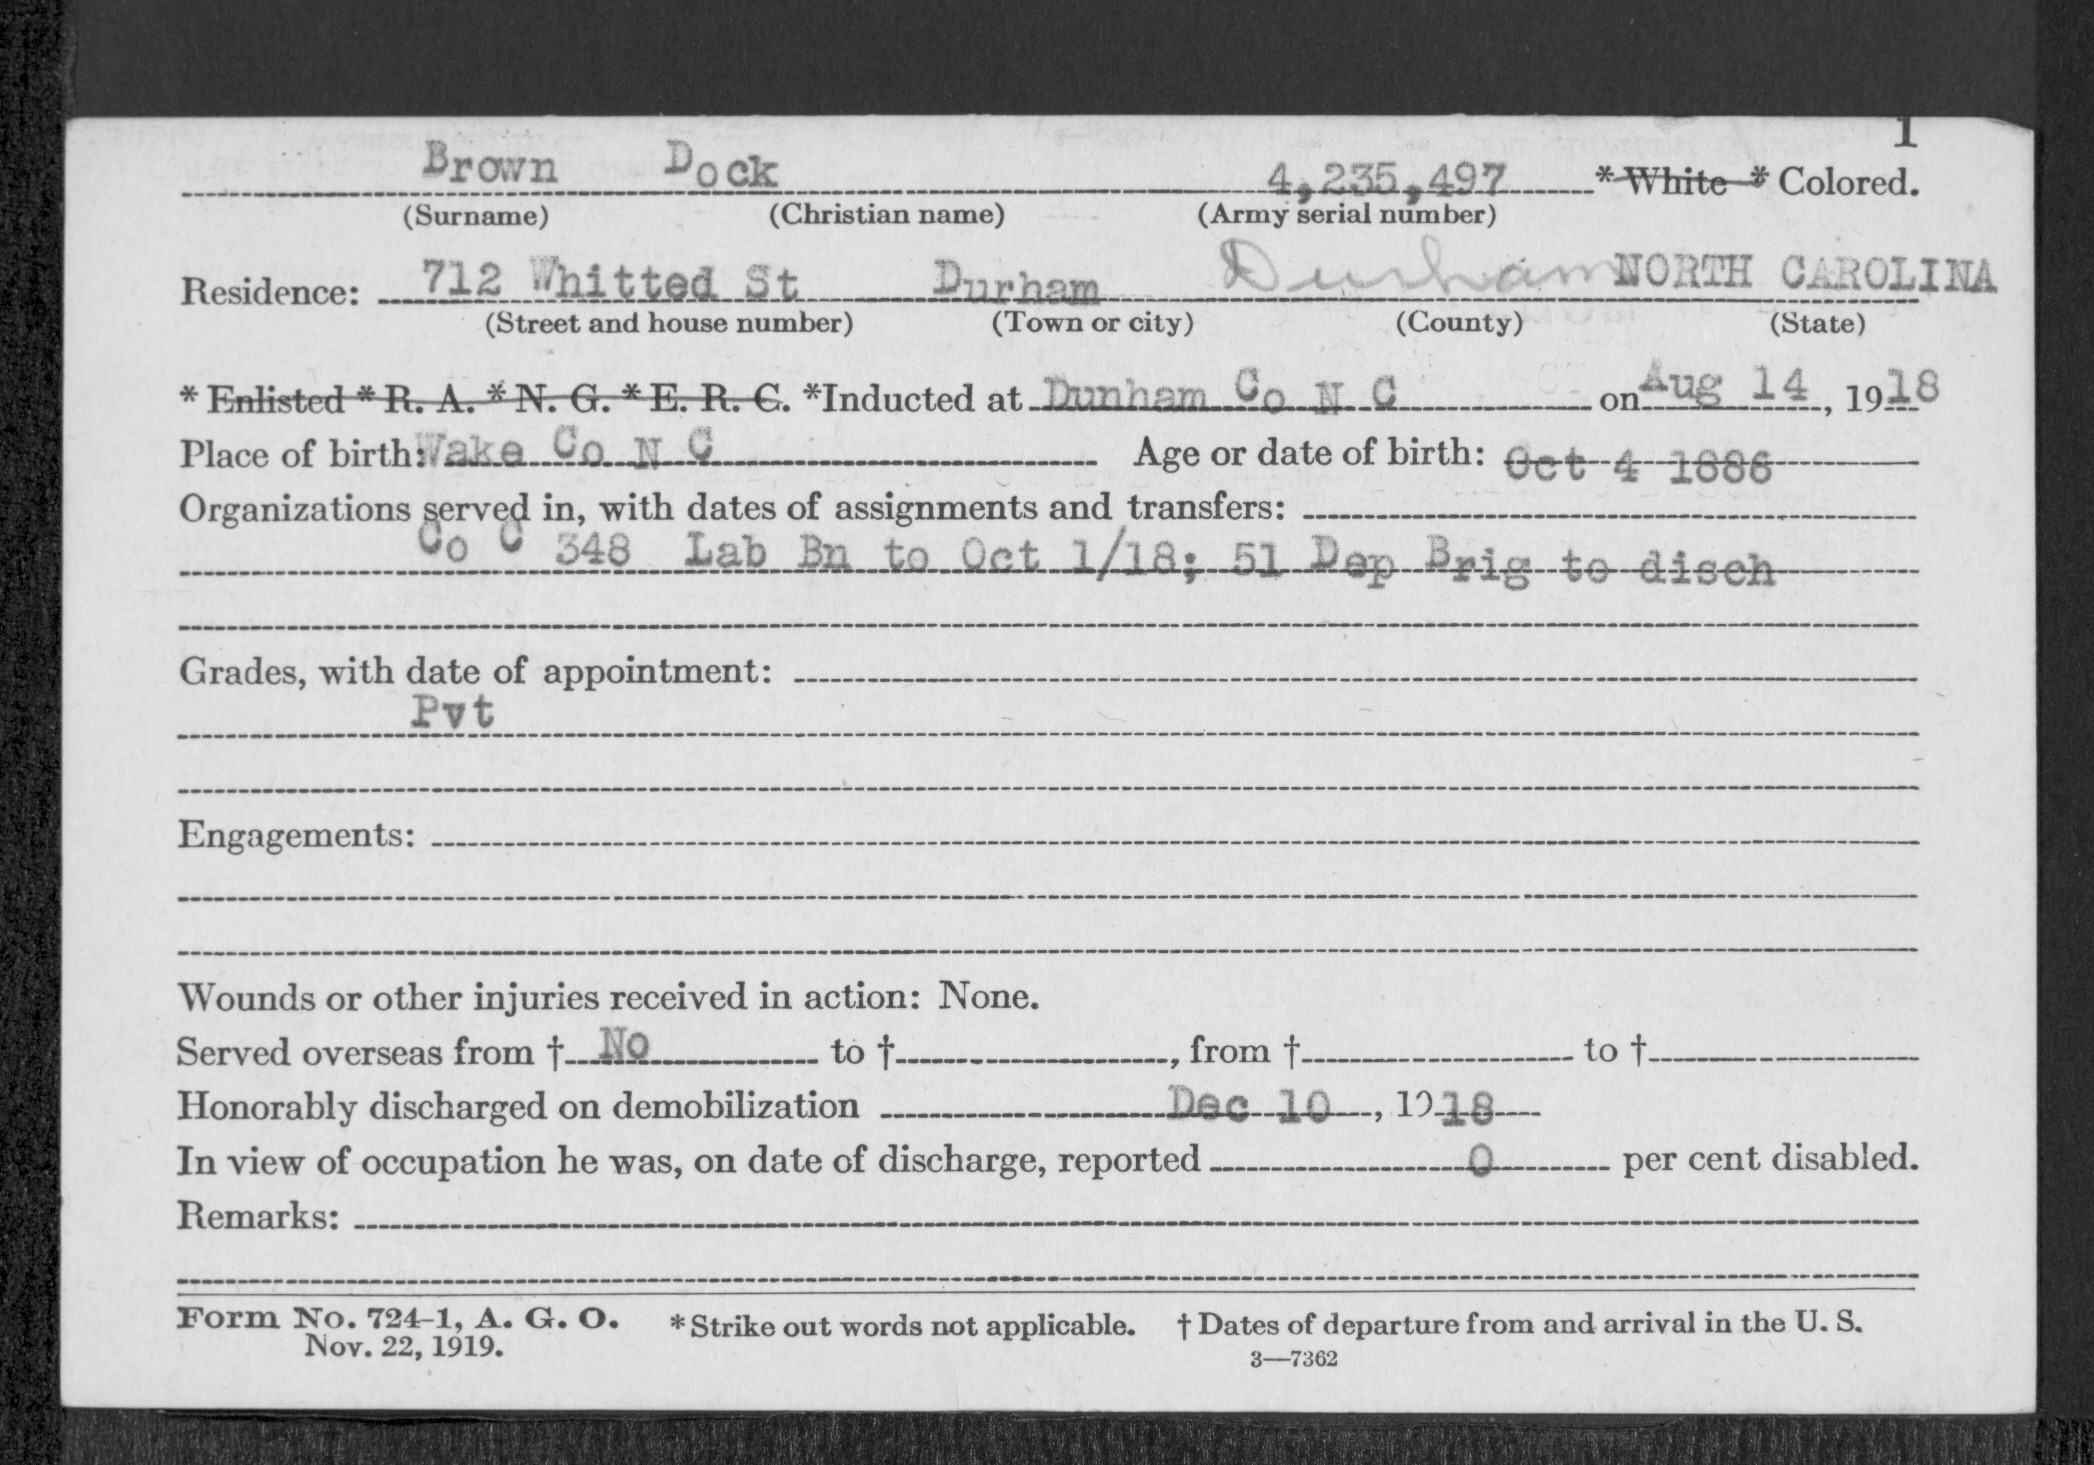 1
Brown Dock 4,235,497 * White * Colored.
(Surname) (Christian name) (Army serial number)
Residence: 712 Whitted St Durham Durham NORTH CAROLINA
(Street and house number) (Town or city) (County) (State)
* Enlisted * R. A. * N. G. * E. R. C. *Inducted at Dunham Co N C on Aug 14, 1918
Place of birth: Wake Co N C Age or date of birth: Oct 4 1886
Organizations served in, with dates of assignments and transfers:
Co C 348 Lab Bn to Oct 1/18; 51 Dep Brig to disch
Grades, with date of appointment:
Pvt
Engagements:
Wounds or other injuries received in action: None.
Served overseas from † No to †, from † to †
Honorably discharged on demobilization Dec 10, 1918
In view of occupation he was, on date of discharge, reported 0 per cent disabled.
Remarks:
Form No. 724-1, A. G. O. *Strike out words not applicable. † Dates of departure from and arrival in the U. S.
Nov. 22, 1919.
3—7362